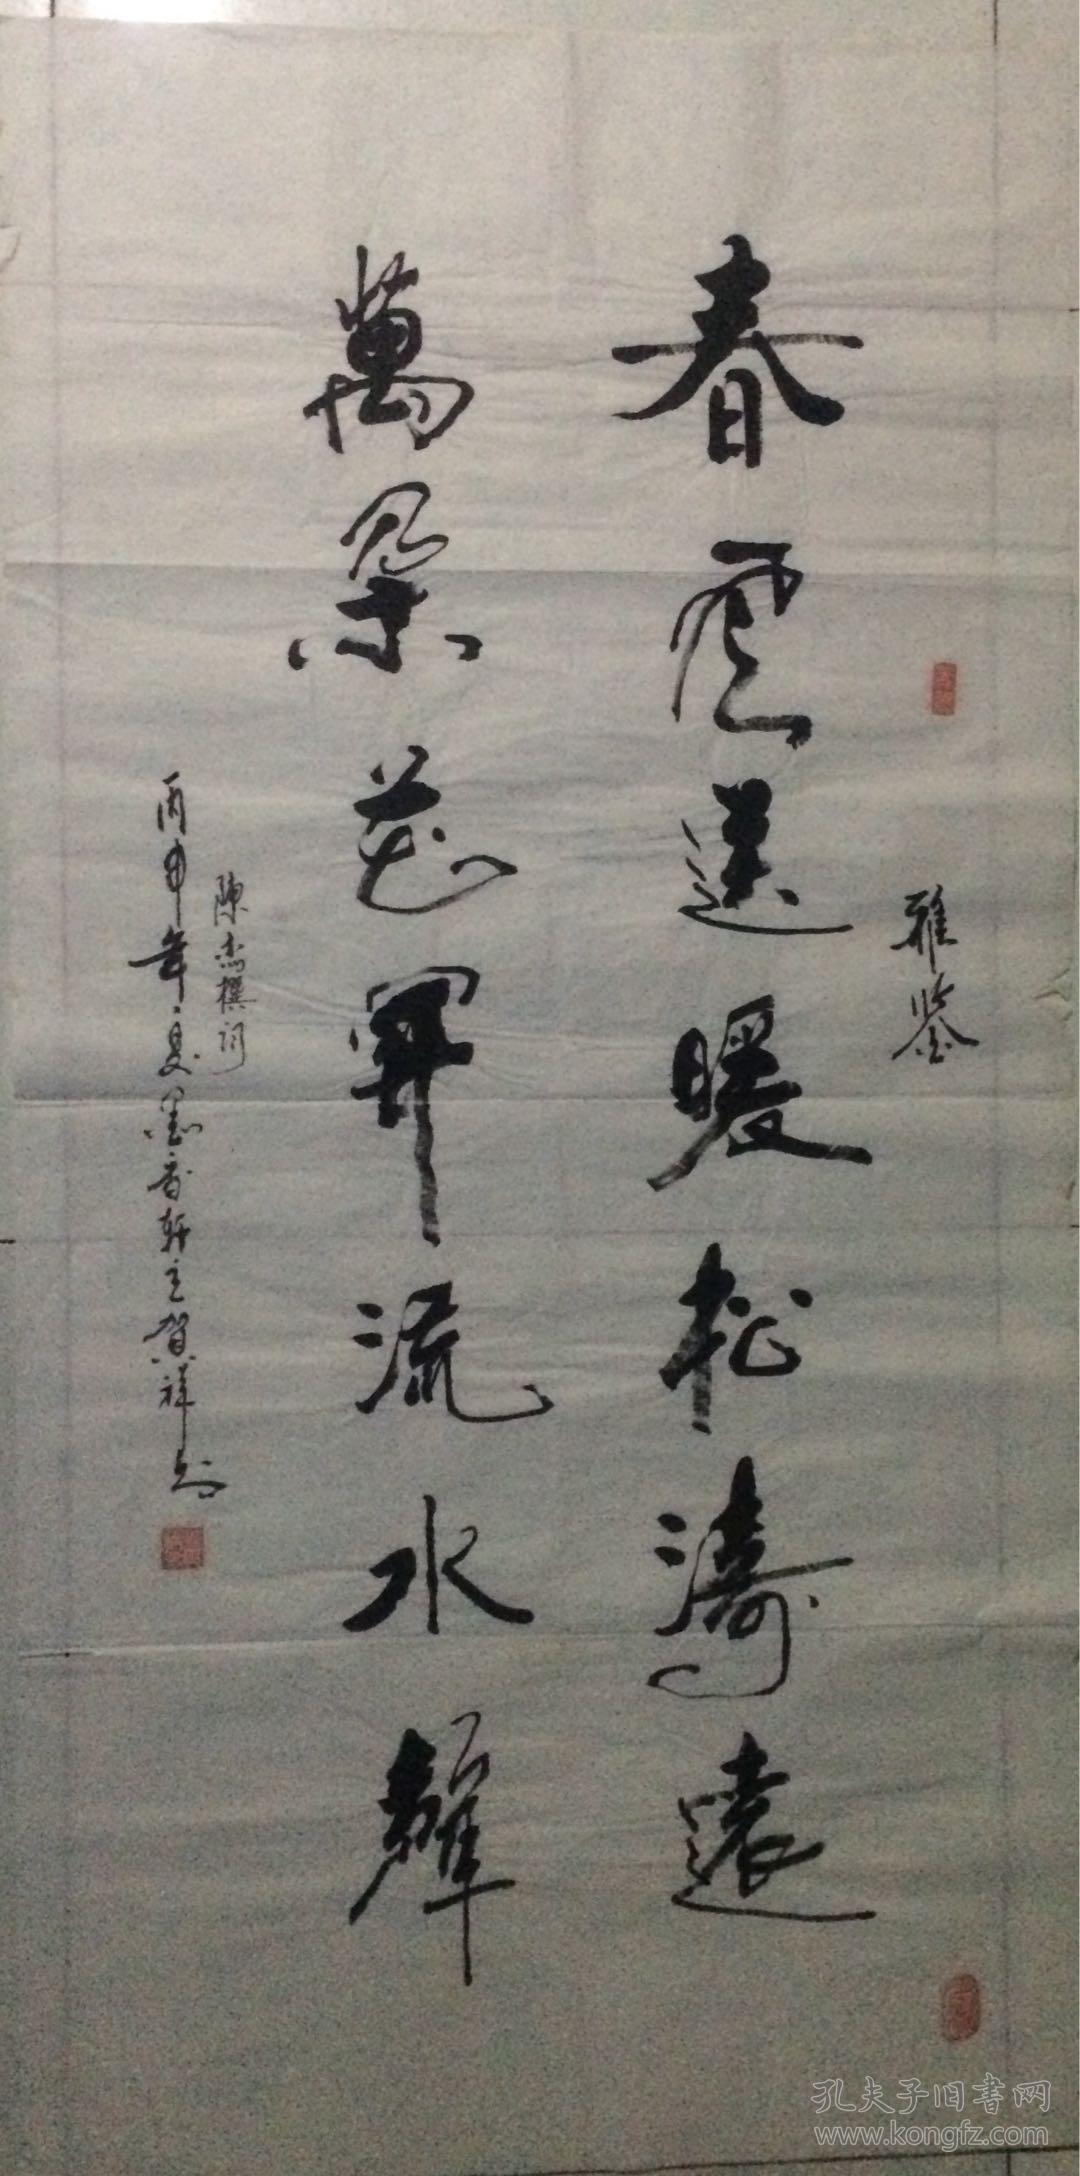 雅鉴
春風送暖松濤遠
萬朵花開流水聲
陳杰撰词
丙申年夏墨香轩主贺祥书
孔夫子旧书网
www.kongfz.com